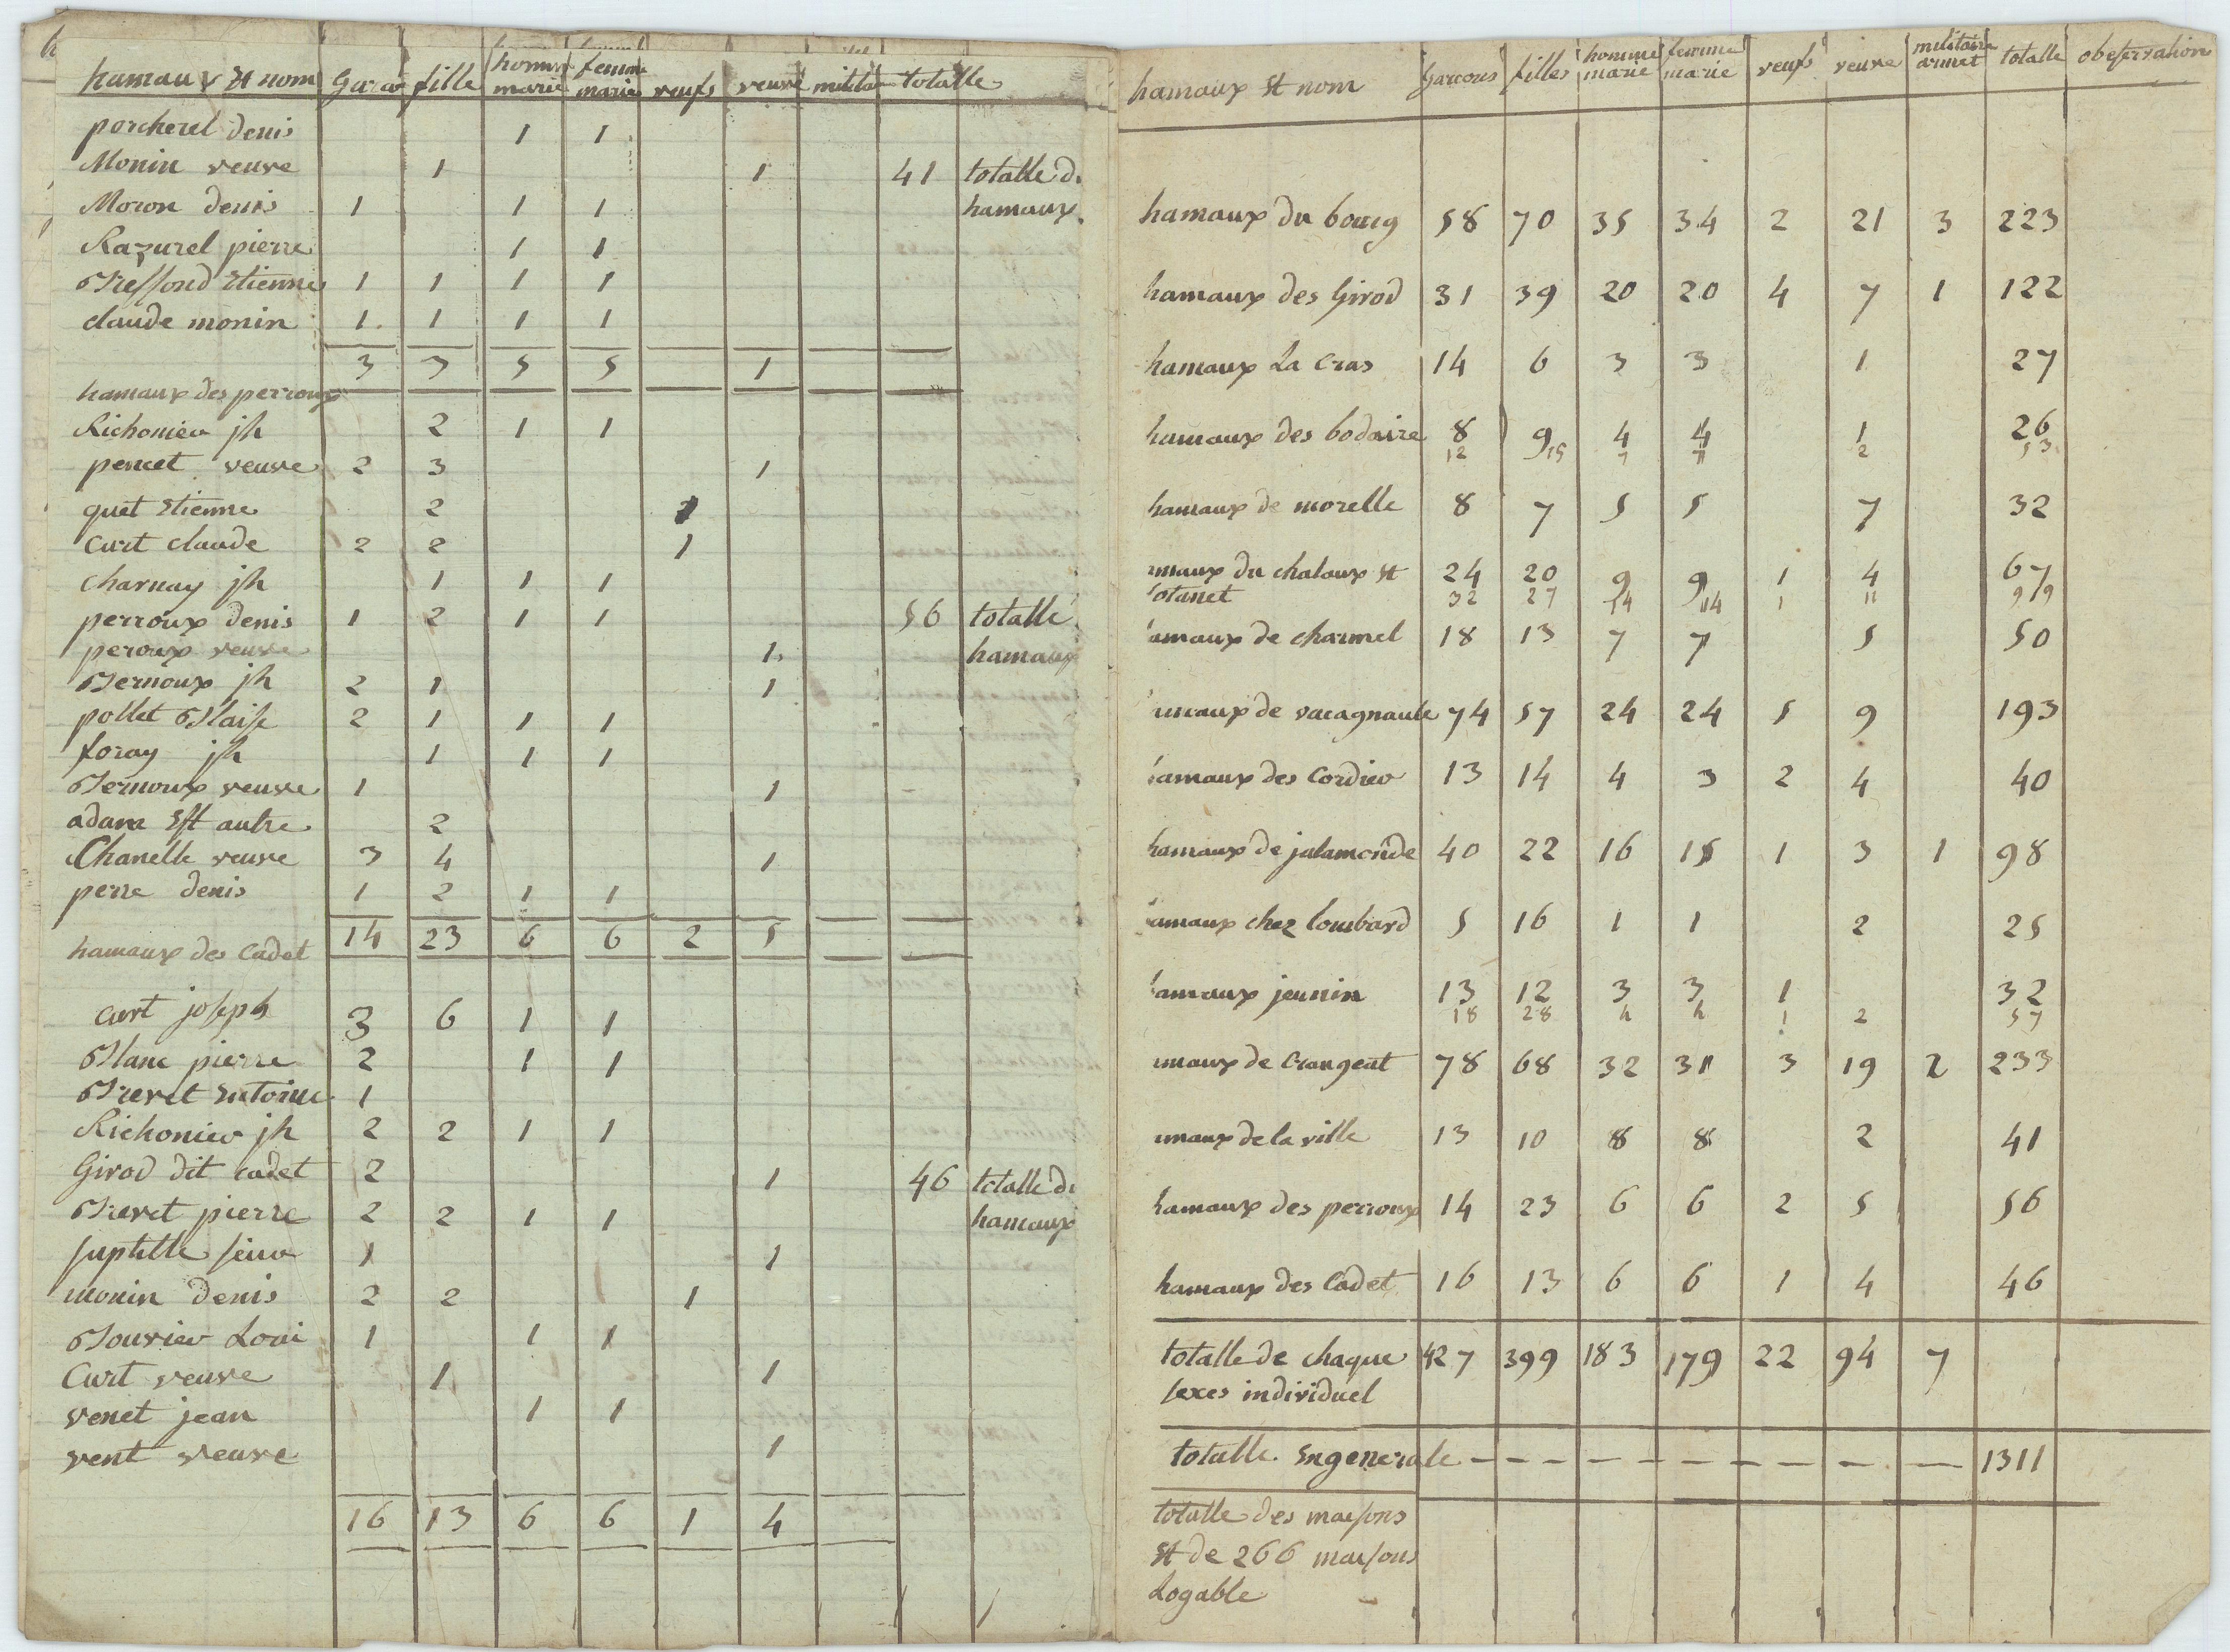 hamaux et nom garço fille homme marié femme marié veufs veuve milita totalle
porcherel denis 1 1
Monin veuve 1 1 41 totalle d
Moron denis 1 1 1 hamaux
Razurel pierre 1 1
Bressond Etienne 1 1 1 1
claude monin 1 1 1 1
3 3 5 5 1
hamaux des perroux
Richonier jh 2 1 1
pencet veuve 2 3 1
quet Etienne 2 1
Curt claude 2 2 1
Charnay jh 1 1 1
perroux denis 1 2 1 1 56 totalle
peroux veuve 1 hamaux
Bernoux jh 2 1 1
pollet Blaise 2 1 1 1
foray jh 1 1 1
Bernoux veuve 1 1
adam Est autre 2
Chanelle veuve 3 4 1
perre denis 1 2 1 1
14 23 6 6 2 5
hamaux des Cadet
Curt joseph 3 6 1 1
Blanc pierre 2 1 1
Brevet Entoine 1
Richonier jh 2 2 1 1
Girod dit cadet 2 1 46 totalle d
Brevet pierre 2 2 1 1 hamaux
1 1
monin denis 2 2 1
Bouvier Loui 1 1 1
Curt veuve 1 1
venet jean 1 1
vent veuve 1
16 13 6 6 1 4
hamaux et nom garcons filles homme marie femme marie veufs veuve militaire armet totalle obesersation
hamaux du bourg 58 70 35 34 2 21 3 223
hamaux des Girod 31 39 20 20 4 7 1 122
hamaux La Cras 14 6 3 3 1 27
hamaux des bodaire 8 9 4 4 1 26
12 15 7 7 2 53
hamaux de morelle 8 7 5 5 7 32
maux du chataux et 24 20 9 9 1 4 67
otanet 32 27 14 14 1 11 99
amaux de charmel 18 13 7 7 5 50
maux de vacagnaule 74 57 24 24 5 9 193
amaux des Cordier 13 14 4 3 2 4 40
hamaux de jalamonde 40 22 16 15 1 3 1 98
amaux chez lombard 5 16 1 1 2 25
amaux jeunin 13 12 3 3 1 32
18 28 4 4 1 2 57
maux de Crangeat 78 68 32 31 3 19 2 233
maux de la ville 13 10 8 8 2 41
hamaux des perroux 14 23 6 6 2 5 56
hamaux des Cadet 16 13 6 6 1 4 46
totalle de chaque 427 399 183 179 22 94 7
sexes individuel
totalle Engenerale - - - - - - - - - - 1311
totalle des maisons
et de 266 maisons
Logable